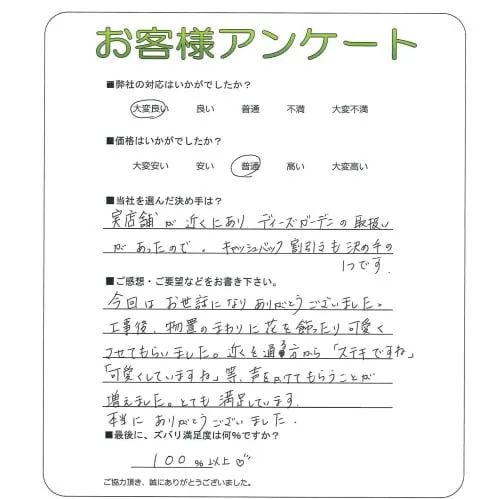 お客様アンケート
■弊社の対応はいかがでしたか？
大変良い 良い 普通 不満 大変不満
■価格はいかがでしたか？
大変安い 安い 普通 高い 大変高い
■当社を選んだ決め手は？
実店舗が近くにあり、ディーズガーデンの取扱い
があったので。キャッシュバック割引きも決め手の
1つです。
■ご感想・ご要望などをお書き下さい。
今回はお世話になりありがとうございました。
工事後、物置のまわりに花を飾ったり可愛く
させてもらいました。近くを通る方から「ステキですね」
「可愛くしていますね」等、声をかけてもらうことが
増えました。とても満足しています。
本当にありがとうございました。
■最後に、ズバリ満足度は何%ですか？
100%以上♡
ご協力頂き、誠にありがとうございました。